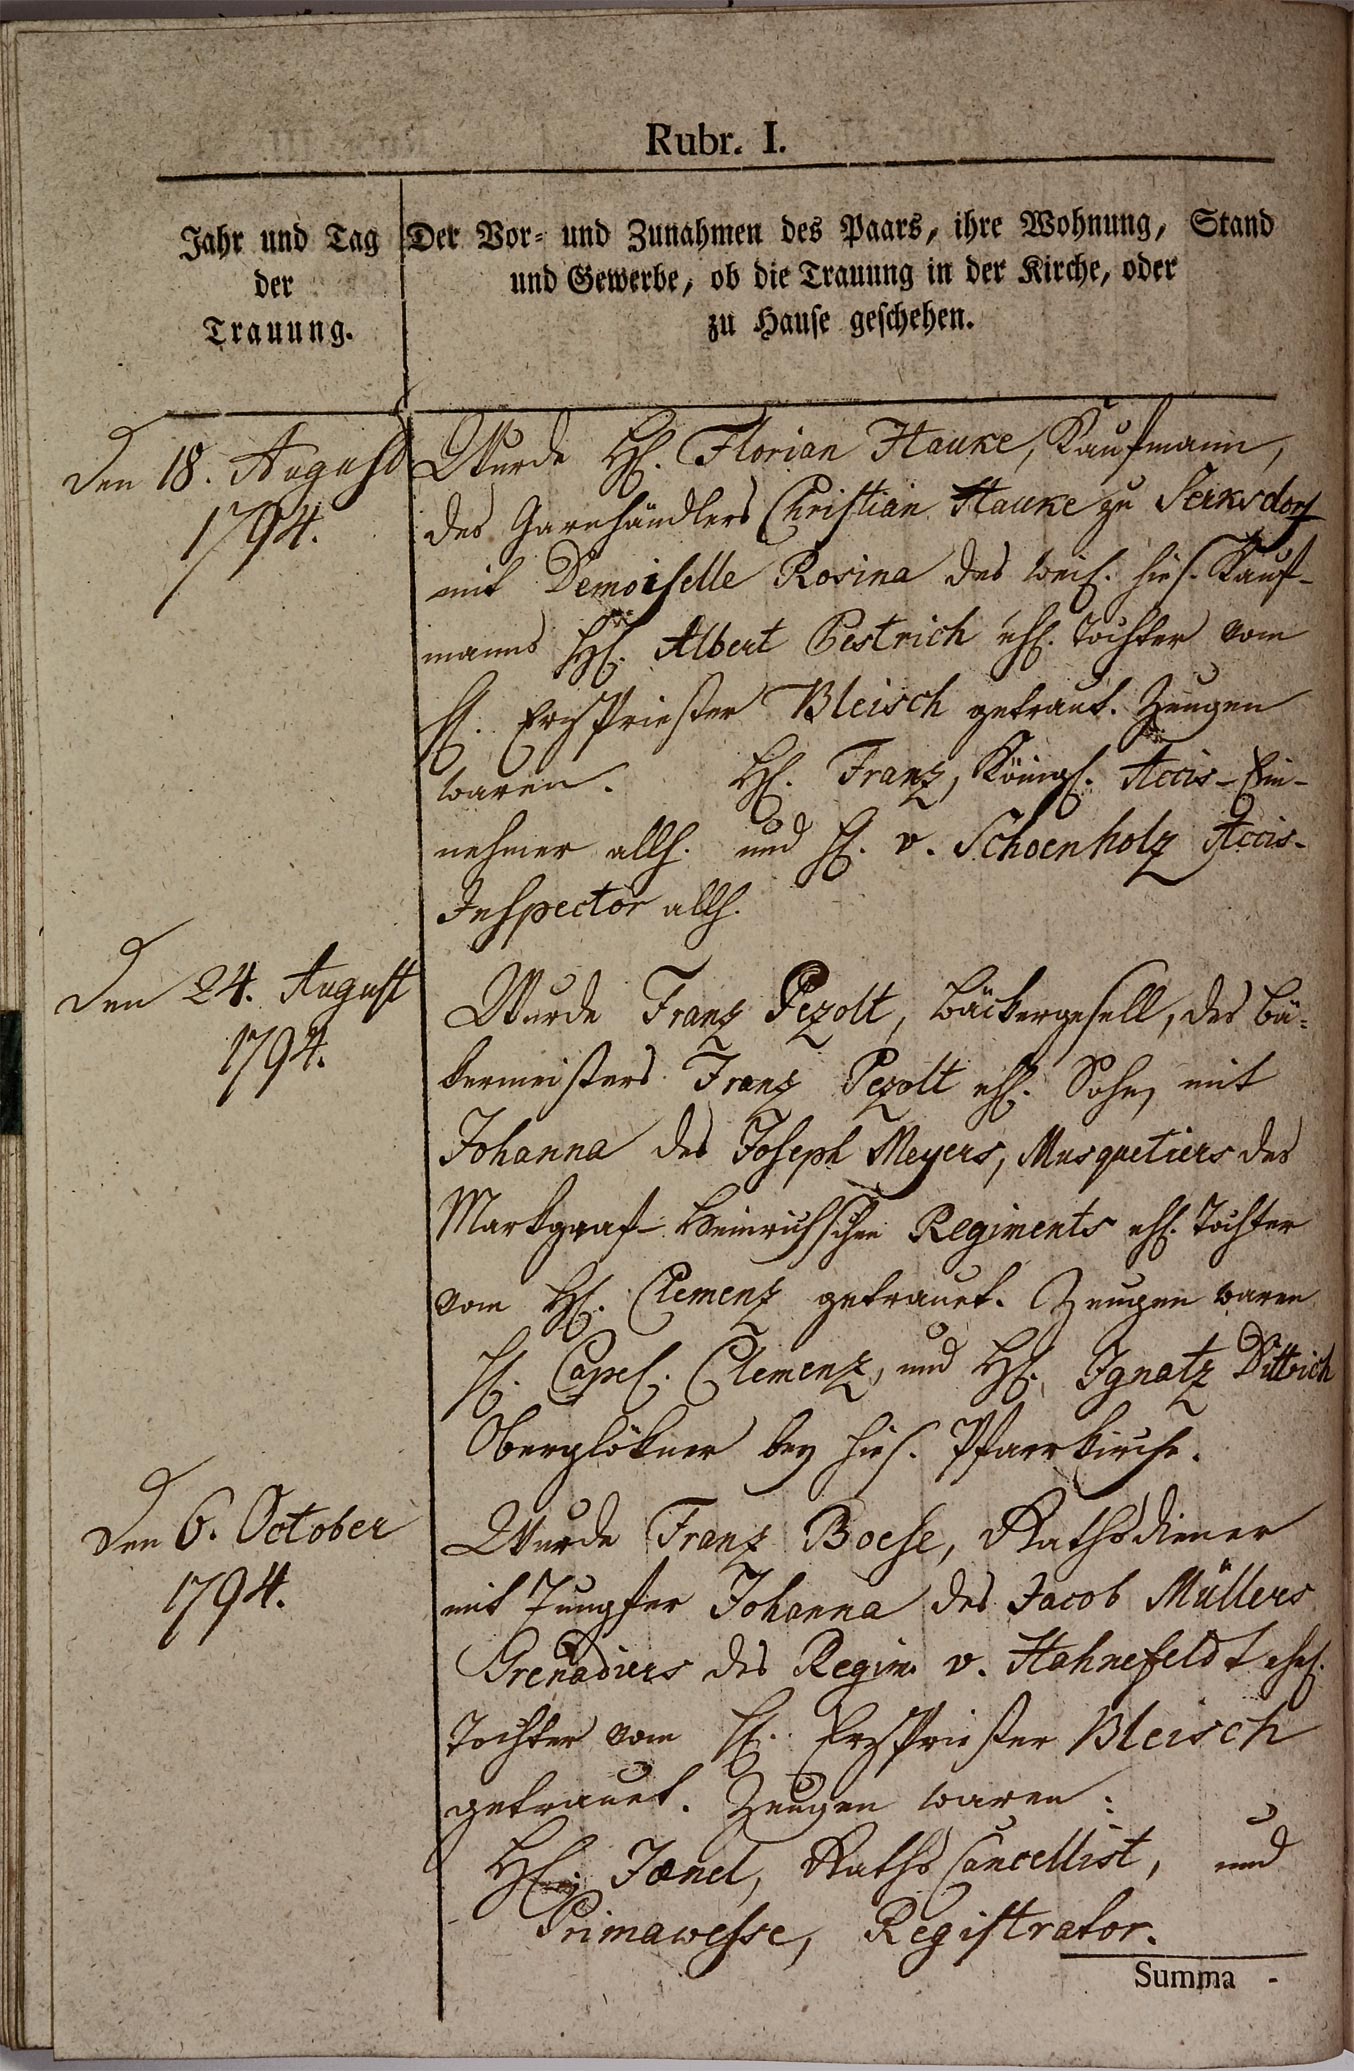 Rubr. I.
Jahr und Tag
der
Trauung.
Der Vor- und Zunahmen des Paars, ihre Wohnung, Stand
und Gewerbe, ob die Trauung in der Kirche, oder
zu Hause geschehen.
Den 18. August
1794.
Wurde H. Florian Hauke, Kaufmann,
des Garnhändlers Christian Hauke zu
mit Demoiselle Rosina des weil. hies. Kauf-
manns H. Albert Pestrich ehl. Tochter vom
H. ErzPriester Bleisch getraut. Zeugen
waren. H. Franz, Königl. Accis-Ein-
nehmer allh. und H. v. Schoenholz Accis-
Inspector allh.
Den 24. August
1794.
Wurde Franz Pezolt, Bäckergesell, des Bä-
kermeisters Franz Pezolt ehl. Sohn, mit
Johanna des Joseph Meyers, Musquetiers des
Markgraf Heinrichschen Regiments ehl. Tochter
vom H. Clemenz getrauet. Zeugen waren
H. Capel. Clemenz, und H. Ignatz Dittrich
Oberglökner bey hies. Pfarrkirche.
Den 6. October
1794.
Wurde Franz Boese, Rathsdiener
mit Jungfer Johanna des Jacob Müllers
Grenadiers des Regim. v. Hahnefeldt ehel.
Tochter vom H. ErzPriester Bleisch
getrauet. Zeugen waren:
H. Jænel, Raths Cancellist, und
Primawesse, Registrator.
Summa -